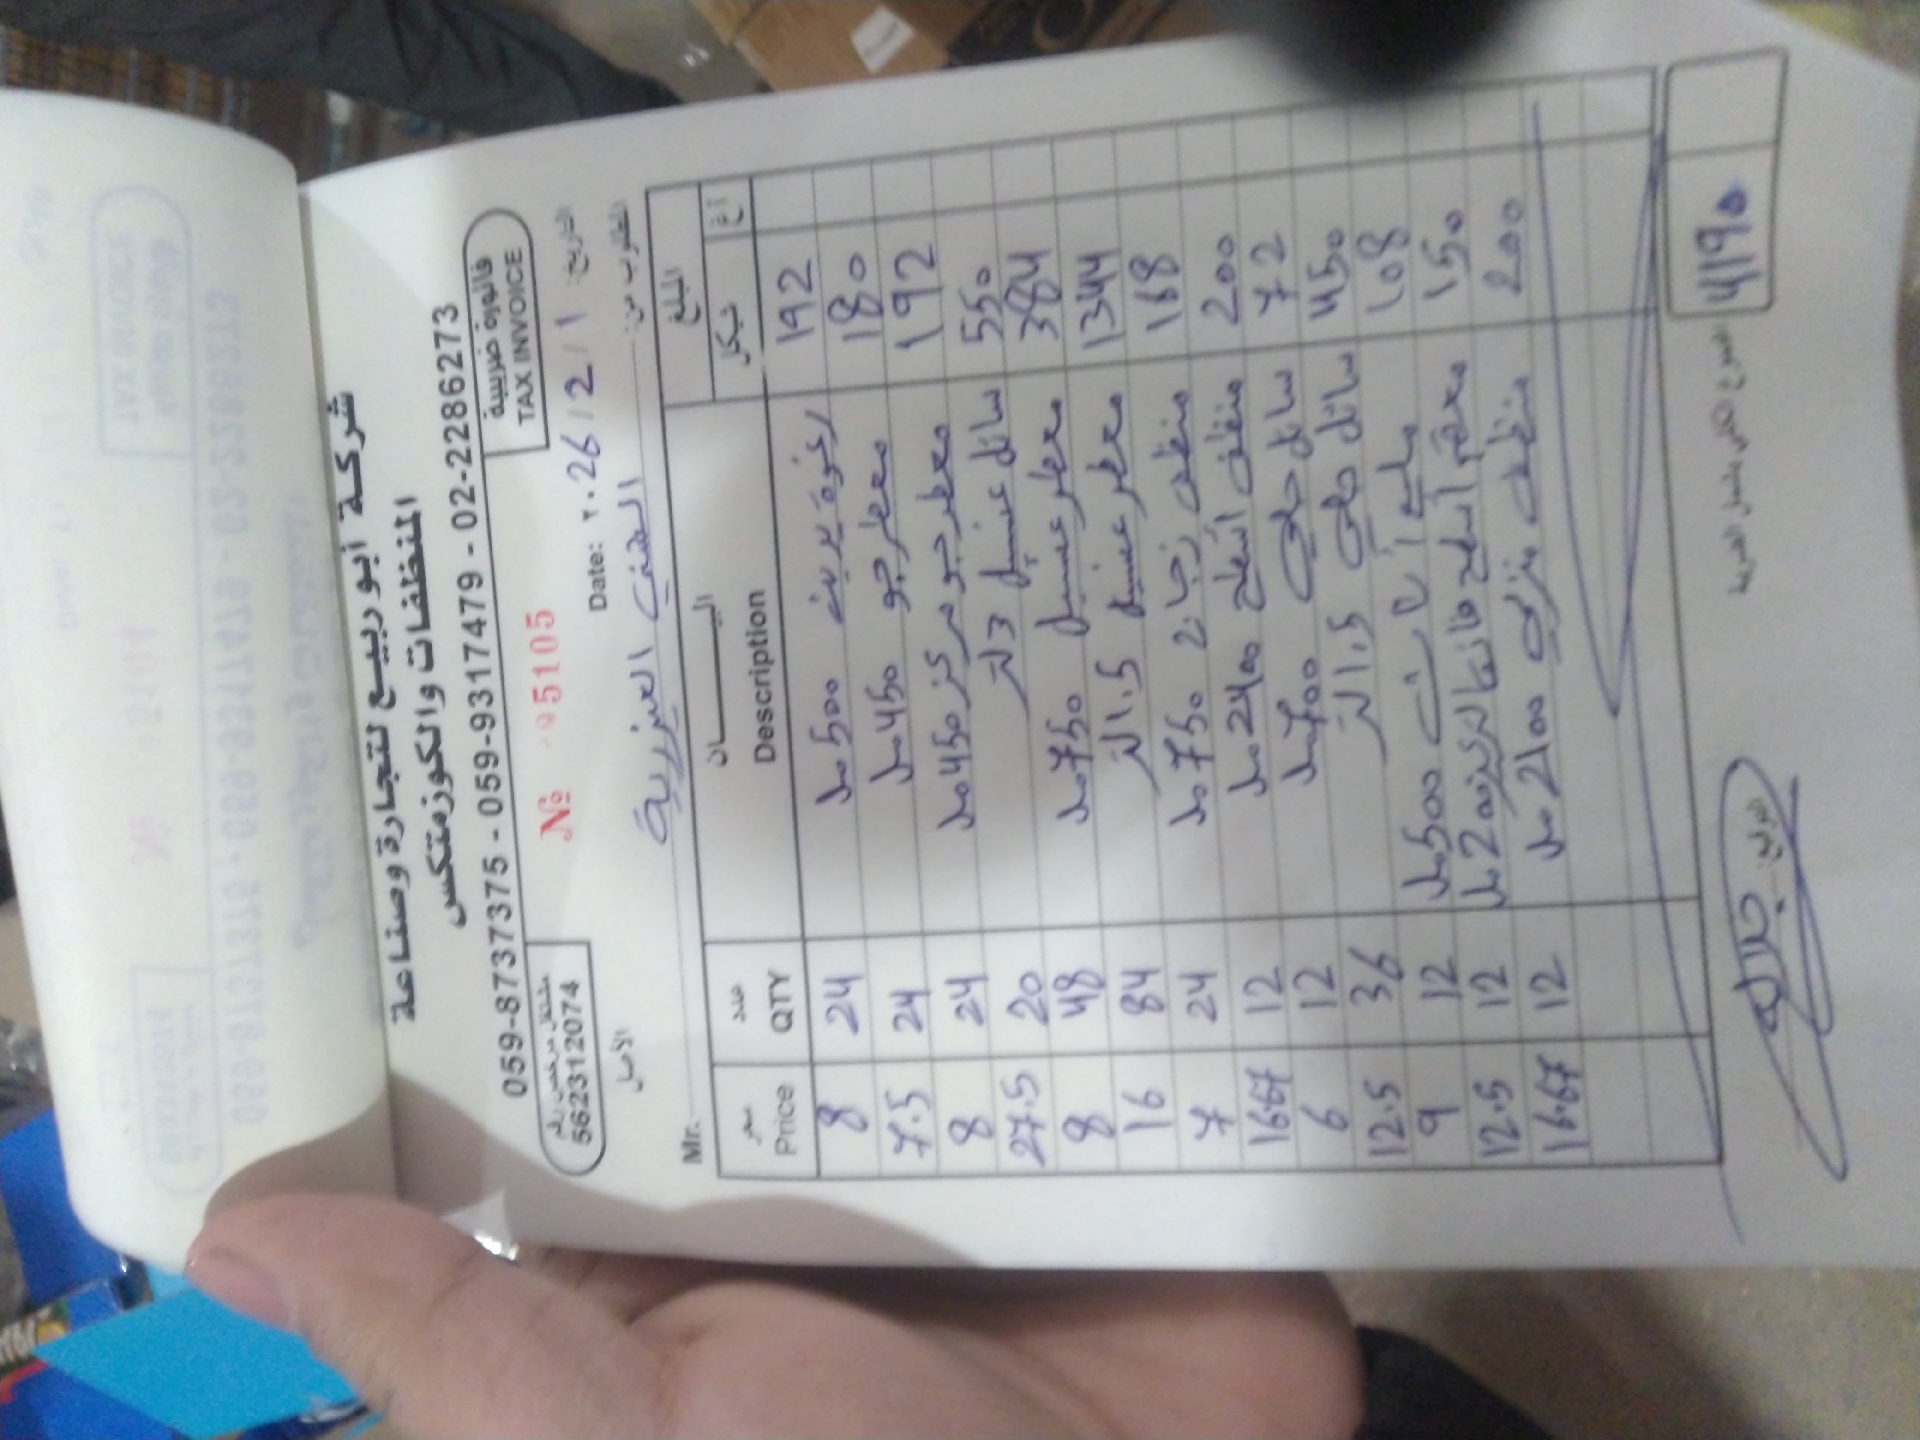 شركة أبو ربيع لتجارة وصناعة
المنظفات والكوزمتكس
059-8737375 - 059-9317479 - 02-2286273
مشتغل مرخص رقم
562312074
№ 05105
فاتورة ضريبية
TAX INVOICE
الأصل
Date: ٢٠26/2/1 التاريخ:
Mr. العيزرية المطلوب من:
سعر عدد البيـــــــان المبلغ
Price QTY Description شيكل أغ
8 24 500 مل 192
7.5 24 معطر جو 450 مل 180
8 24 معطر جو 450 مل 192
27.5 20 سائل غسيل 3 لتر 550
8 48 معطر غسيل 750 مل 384
16 84 معطر غسيل 1.5 لتر 1344
7 24 منظف زجاج 750 مل 168
16.67 12 منظف أسطح 2400 مل 200
6 12 سائل جلي 700 مل 72
12.5 36 سائل جلي 1.5 لتر 450
9 12 500 مل 108
12.5 12 معقم أسطح 200 مل 150
16.67 12 منظف 2100 مل 200
المجموع الكلي يشمل الضريبة 4190
التوقيع: